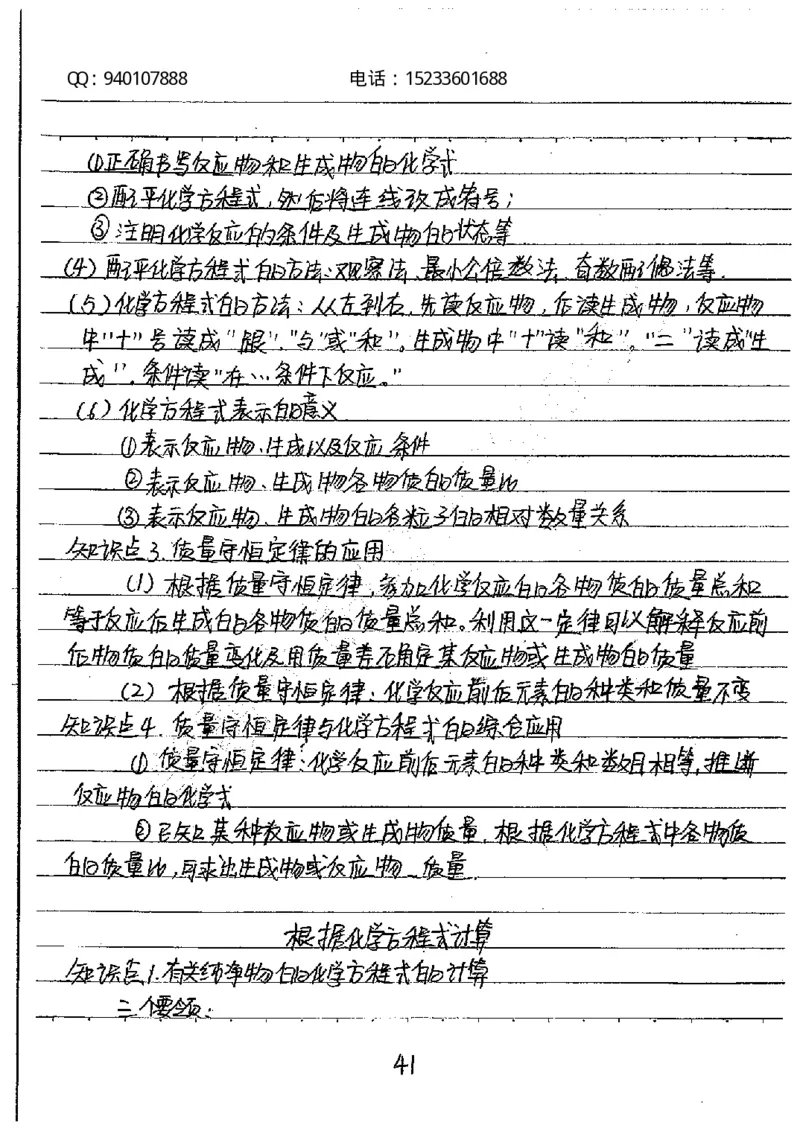 QQ：940107888 电话：15233601688
①正确书写反应物和生成物的化学式
②配平化学方程式，然后将连线改成符号；
③注明化学反应的条件及生成物的状态等
(4) 配平化学方程式的方法：观察法、最小公倍数法、奇数配偶法等.
(5) 化学方程式的方法：从左到右，先读反应物，后读生成物，反应物
中"十"号读成"跟"."与"或"和"。生成物中"十"读"和"。"="读成"生
成"，条件读"在…条件下反应。"
(6) 化学方程式表示的意义
①表示反应物、生成以及反应条件
②表示反应物、生成物各物质的质量比
③表示反应物、生成物的各粒子的相对数量关系
知识点3.质量守恒定律的应用
(1) 根据质量守恒定律，参加化学反应的各物质的质量总和
等于反应后生成的各物质的质量总和。利用这一定律可以解释反应前
后物质的质量变化及用质量差不确定某反应物或生成物的质量
(2) 根据质量守恒定律：化学反应前后元素的种类和质量不变
知识点4.质量守恒定律与化学方程式的综合应用
① 质量守恒定律：化学反应前后元素的种类和数目相等，推断
反应物的化学式
②已知某种反应物或生成物质量，根据化学方程式中各物质
的质量比，可求出生成物或反应物 质量
根据化学方程式计算
知识点1.有关纯净物的化学方程式的计算
三个要领：
41